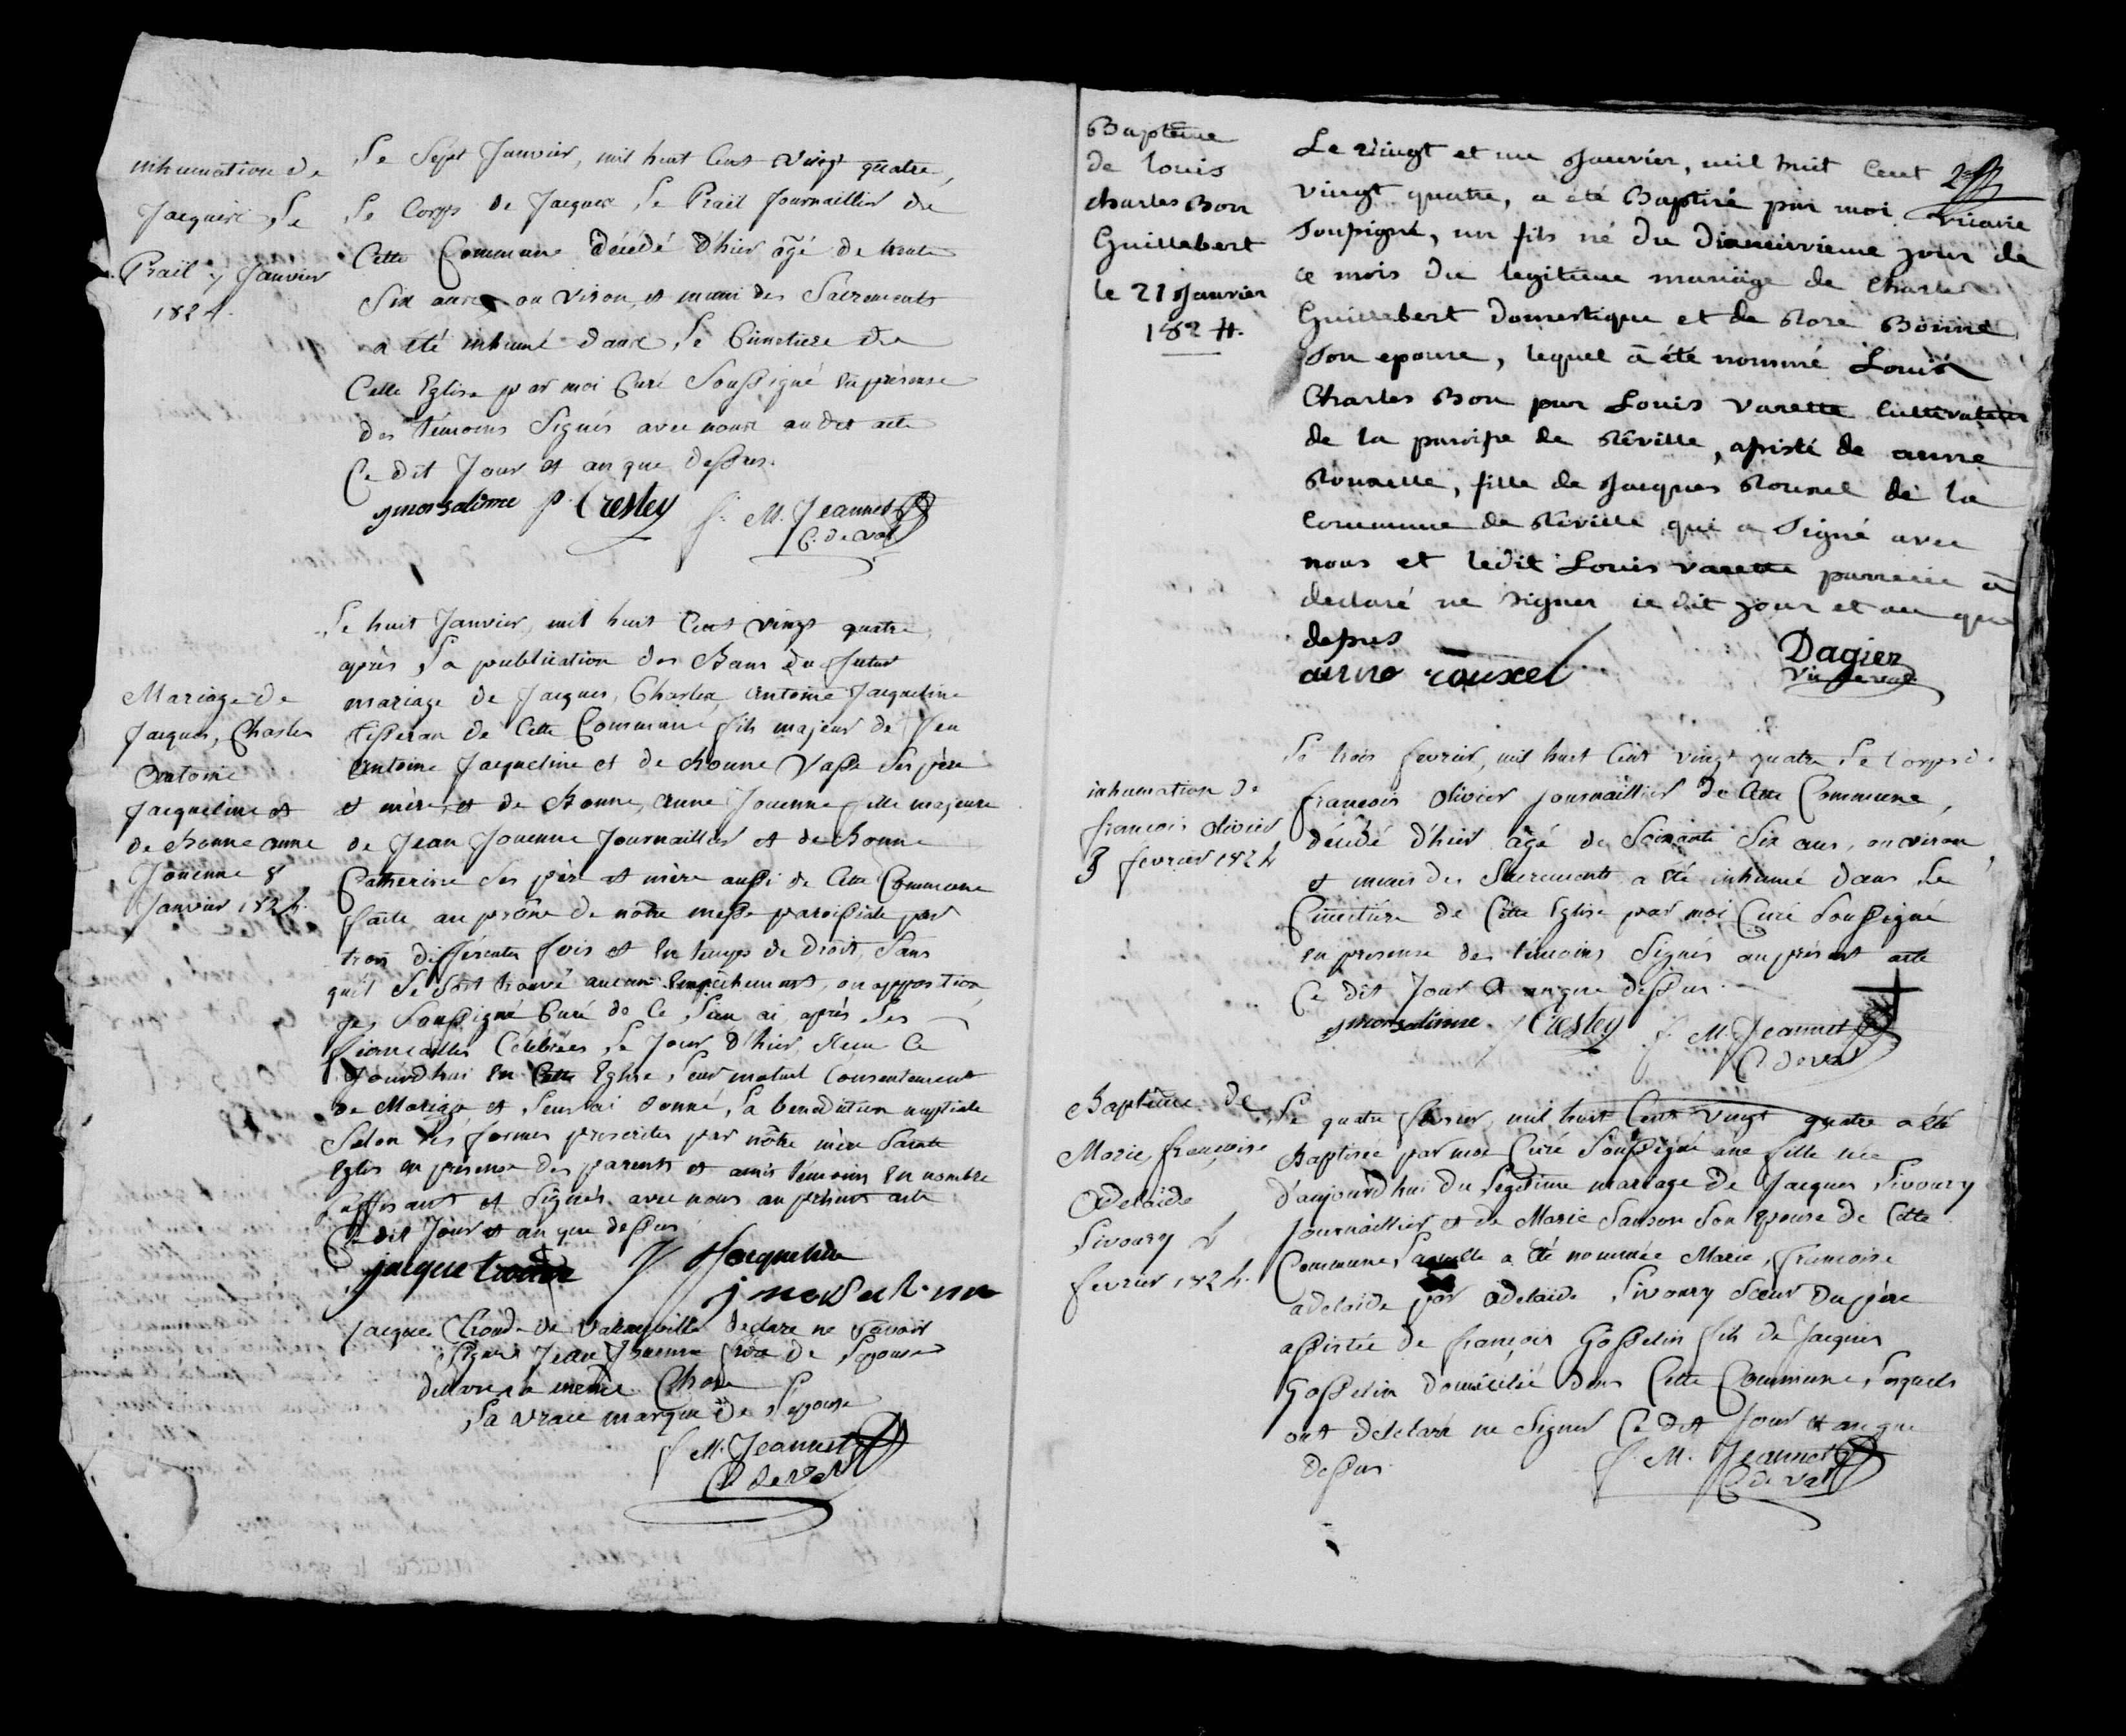 inhumation de
Jacques Le
Prail 7 Janvier
1824.
Le Sept Janvier, mil huit Cent vingt quatre,
Le Corps de Jacques Le Prail Journaillier de
Cette Commune décédé d'hier âgé de trente
Six ans, ou viron, et muni des Sacrements
a été inhumé dans Le Cimetiere de
Cette Eglise par moi Curé Soussigné en présense
des témoins Signés avec nous au dit acte
Ce dit Jour et an que dessus.
P. Cresley f. M. Jeannet
C. de Val
Mariage de
Jacques, Charles
Antoine
Jacqueline et
de Bonne Anne
Jouenne 8
Janvier 1824.
Le huit Janvier, mil huit Cent vingt quatre,
après La publication des Bans du futur
mariage de Jacques, Charles, Antoine Jacqueline
tisseran de Cette Commune fils majeur de feu
Antoine Jacqueline et de Bonne Vasse Ses père
et mère, et de Bonne, Anne Jouenne fille majeure
de Jean Jouenne Journaillier et de Bonne
Catherine Ses père et mère aussi de Cette Commune
faite au prône de nôtre messe paroissiale par
trois différentes fois et en temps de droit, Sans
quil Se Soit trouvé aucun Empêchement, ou opposition,
Je, Soussigné Curé de Ce Lieu ai, après Les
fiancailles Célébrées Le Jour d'hier, Reçu Ce
Jourdhui en Cette Eglise, Leur mutuel Consentement
de Mariage et Leur ai donné, La benediction nuptiale
Selon Les formes prescrites par nôtre mère Sainte
Eglise en présense des parents et amis témoins en nombre
Suffisant et Signés avec nous au présent acte
Ce dit Jour et an que dessus
jacque
Jacque de declare ne Savoir
Signer Jean Jouenne de Lépouse
déclare la même Chose
La vraie marque de Lépouse
f. M. Jeannet
C de Val
Baptême
de Louis
Charles Bon
Guillebert
le 21 Janvier
1824.
2
Le vingt et un Janvier, mil huit Cent
vingt quatre, a été Baptisé par moi vicaire
Soussigné, un fils né du dixneuvieme jour de
ce mois du legitime mariage de Charles
Guillebert domestique et de Rose Bonne
Son epouse, lequel à été nommé Louis
Charles Bon par Louis Varette Cultivateur
de la paroisse de Réville, assisté de anne
Rouxelle, fille de Jacques Rouxel de la
Commune de Réville qui a Signé avec
nous et ledit Louis varette parrein à
declaré ne Signer ce dit jour et an que
dessus
anne rouxel
Dagier
Vic de Val
inhumation de
françois Olivier
3 fevrier 1824
Le trois fevrier, mil huit Cent vingt quatre Le Corps de
françois Olivier Journaillier de Cette Commune,
décédé d'hier âgé de Soixante Six ans, ou viron,
et muni des Sacrements a été inhumé dans Le
Cimetière de Cette Eglise par moi Curé Soussigné
en présense des témoins Signés au présent acte
Ce dit Jour et an que dessus.
Cresley f. M. Jeannet
C de Val
Baptême de
Marie, françoise
Adelaide
Sivoury 4
fevrier 1824.
Le quatre fevrier, mil huit Cent vingt quatre a été
Baptisée par moi Curé Soussigné une fille née
d'aujourd'hui du Legitime mariage de Jacques Sivoury
Journaillier et de Marie Sanson Son Epouse de Cette
Commune, Laquelle a été nommée Marie, françoise
adelaide par Adelaide Sivoury Sœur du père
assistée de françois Gosselin fils de Jacques
Gosselin domicilié dans Cette Commune, Lesquels
ont déclaré ne Signer Ce dit Jour et an que
dessus.
f. M. Jeannet
C de Val